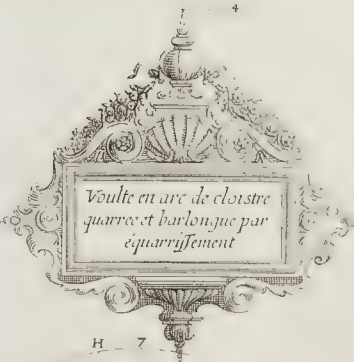 4
Voulte en arc de cloistre
quarree et barlongue par
équarriſſement
H 7